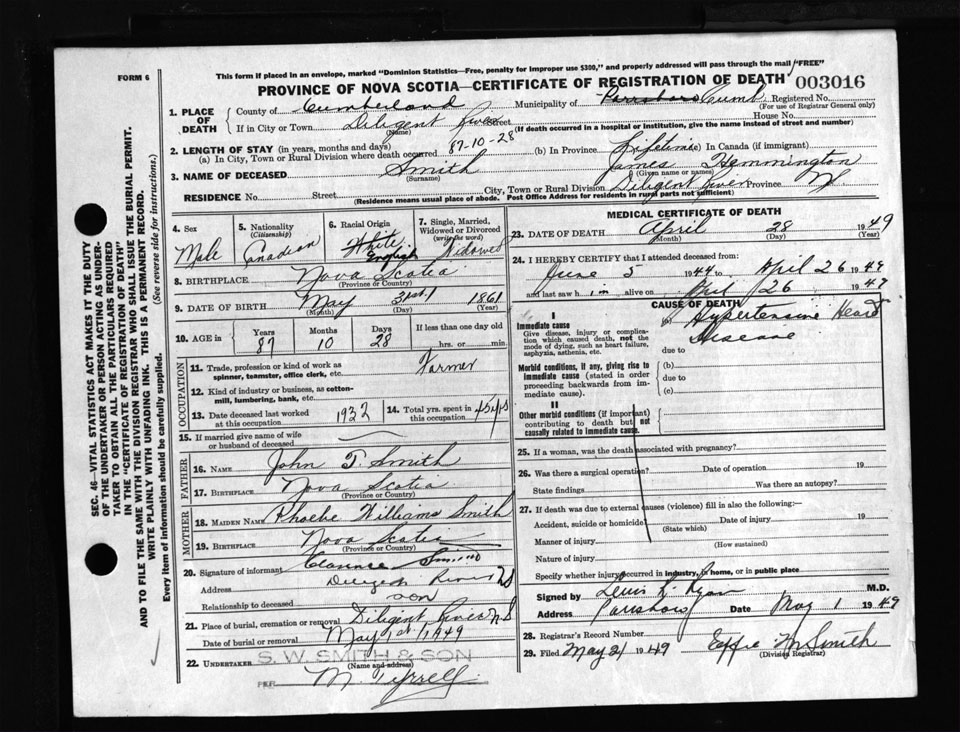 FORM 6
This form if placed in an envelope, marked "Dominion Statistics—Free, penalty for improper use $300," and properly addressed will pass through the mail "FREE"
PROVINCE OF NOVA SCOTIA—CERTIFICATE OF REGISTRATION OF DEATH
003016
Registered No.
(For use of Registrar General only)
1. PLACE OF DEATH
County of Cumberland Municipality of Parrsboro Cumb.
If in City or Town Diligent River Street House No.
(Name) (If death occurred in a hospital or institution, give the name instead of street and number)
2. LENGTH OF STAY (in years, months and days)
(a) In City, Town or Rural Division where death occurred 87-10-28 (b) In Province Lifetime (c) In Canada (if immigrant)
3. NAME OF DECEASED Smith James Hemmington
(Surname) (Given name or names)
RESIDENCE No. Street City, Town or Rural Division Diligent River Province N.S.
(Residence means usual place of abode. Post Office Address for residents in rural parts not sufficient)
4. Sex
Male
5. Nationality
(Citizenship)
Canadian
6. Racial Origin
White
English
7. Single, Married, Widowed or Divorced
(write the word)
Widowed
8. BIRTHPLACE Nova Scotia
(Province or Country)
9. DATE OF BIRTH May 31st 1861
(Month) (Day) (Year)
10. AGE in Years Months Days If less than one day old
87 10 28 hrs. or min.
OCCUPATION
11. Trade, profession or kind of work as spinner, teamster, office clerk, etc. Farmer
12. Kind of industry or business, as cotton-mill, lumbering, bank, etc.
13. Date deceased last worked at this occupation 1932
14. Total yrs. spent in this occupation 45 yrs
15. If married give name of wife or husband of deceased
FATHER
16. NAME John T. Smith
17. BIRTHPLACE Nova Scotia
(Province or Country)
MOTHER
18. MAIDEN NAME Phoebe Williams Smith
19. BIRTHPLACE Nova Scotia
(Province or Country)
20. Signature of informant Clarence Smith
Address Diligent River N.S
Relationship to deceased son
21. Place of burial, cremation or removal Diligent River N.S
Date of burial or removal May 1st 1949
22. UNDERTAKER S. W. SMITH & SON
(Name and address)
PER M. Tyrrell
MEDICAL CERTIFICATE OF DEATH
23. DATE OF DEATH April 28 1949
(Month) (Day) (Year)
24. I HEREBY CERTIFY that I attended deceased from:
June 5 1944 to April 26 1949
and last saw him alive on April 26 1949
CAUSE OF DEATH
I
Immediate cause
Give disease, injury or complication which caused death, not the mode of dying, such as heart failure, asphyxia, asthenia, etc.
(a) Hypertensive Heart Disease
due to
Morbid conditions, if any, giving rise to immediate cause (stated in order proceeding backwards from immediate cause).
(b)
due to
(c)
II
Other morbid conditions (if important) contributing to death but not causally related to immediate cause.
25. If a woman, was the death associated with pregnancy?
26. Was there a surgical operation? Date of operation 19
State findings Was there an autopsy?
27. If death was due to external causes (violence) fill in also the following:—
Accident, suicide or homicide? Date of injury 19
(State which)
Manner of injury
(How sustained)
Nature of injury
Specify whether injury occurred in industry, in home, or in public place
Signed by Lewis R. Ryan M.D.
Address Parrsboro Date May 1 1949
28. Registrar's Record Number
29. Filed May 2 1949 Effie M Smith
(Division Registrar)
SEC. 46—VITAL STATISTICS ACT MAKES IT THE DUTY
OF THE UNDERTAKER OR PERSON ACTING AS UNDERTAKER
TO OBTAIN ALL THE PARTICULARS REQUIRED
IN THE "CERTIFICATE OF REGISTRATION OF DEATH"
AND TO FILE THE SAME WITH THE DIVISION REGISTRAR WHO SHALL ISSUE THE BURIAL PERMIT.
WRITE PLAINLY WITH UNFADING INK. THIS IS A PERMANENT RECORD.
Every item of information should be carefully supplied. (See reverse side for instructions.)